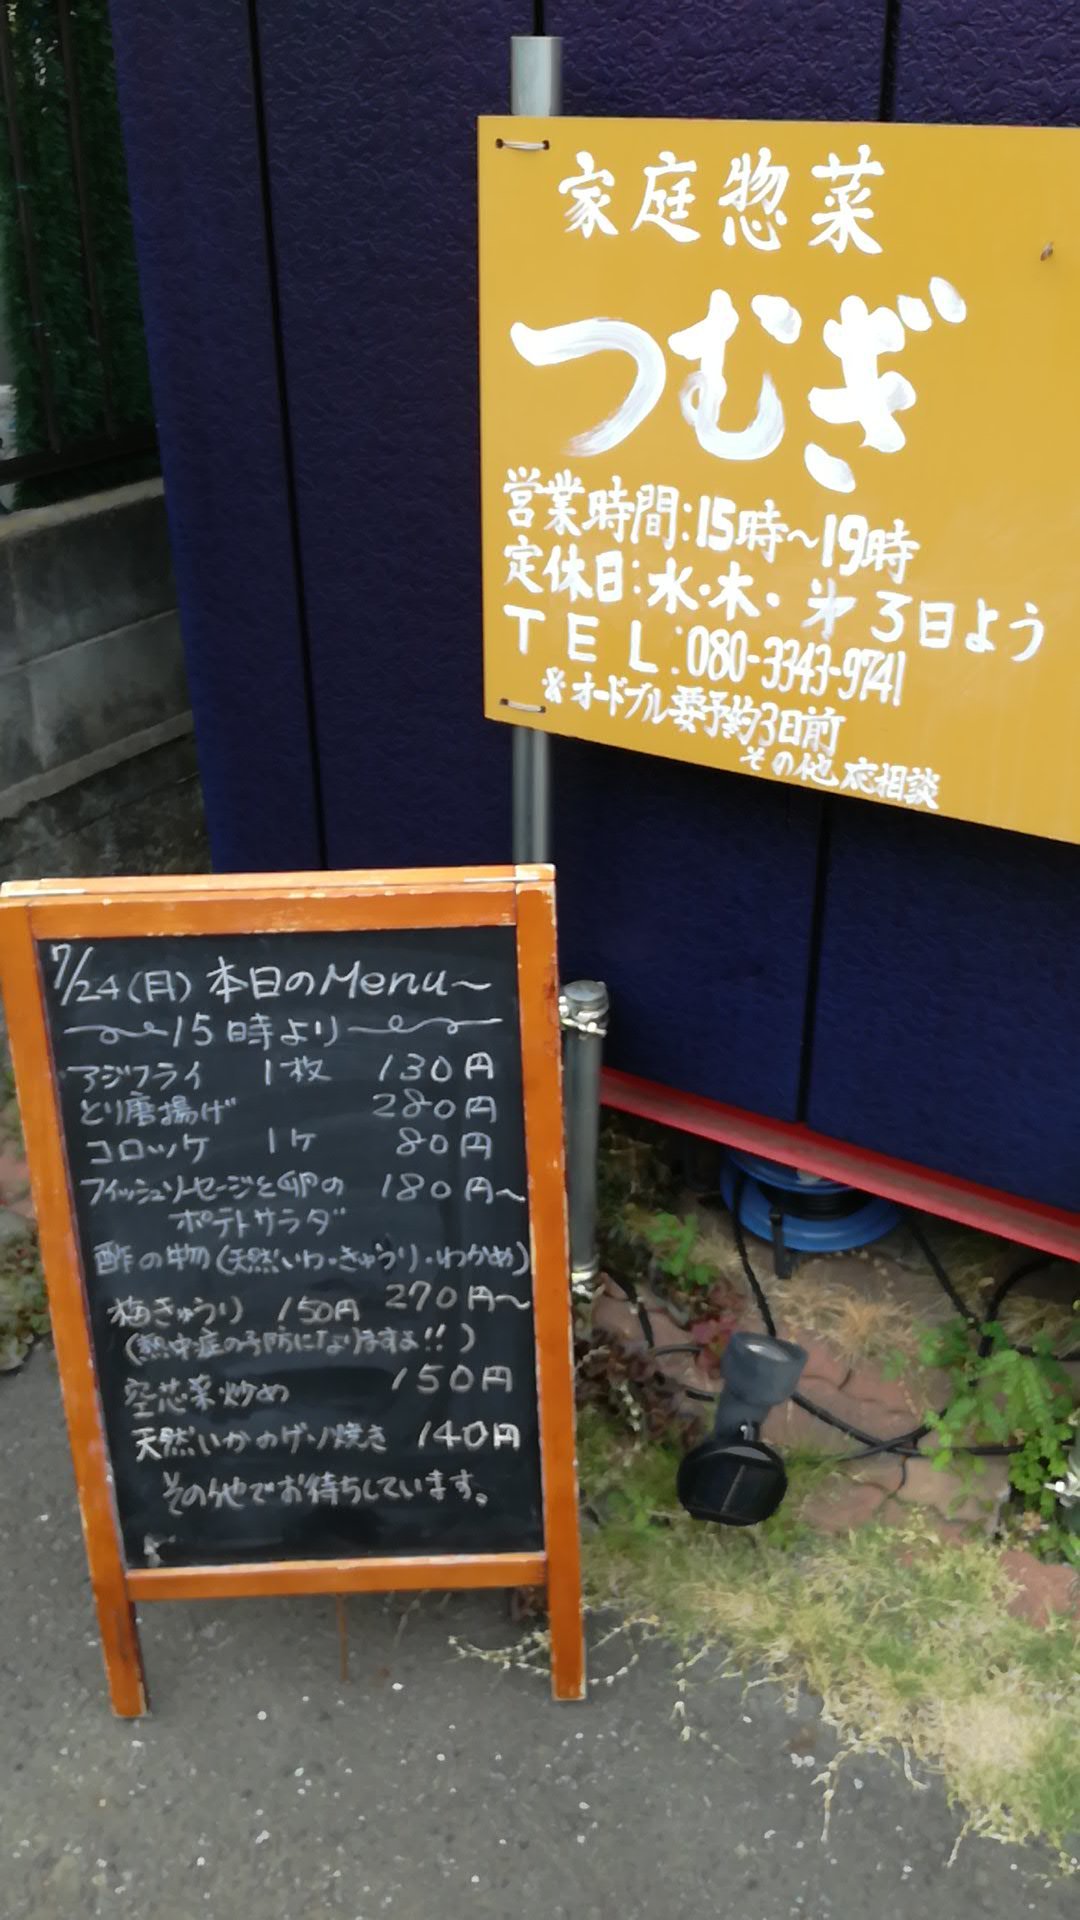 家庭惣菜
つむぎ
営業時間:15時~19時
定休日:水・木・㐧3日よう
TEL:080-3343-9741
※オードブル要予約3日前
その他応相談
7/24(月) 本日のMenu~
15時より
アジフライ 1枚 130円
とり唐揚げ 280円
コロッケ 1ケ 80円
フィッシュソーセージと卵の 180円~
ポテトサラダ
酢の物(天然いわ・きゅうり・わかめ)
270円~
梅きゅうり 150円
(熱中症の予防になりますよ!!)
空芯菜炒め 150円
天然いかのゲソ焼き 140円
その他でお待ちしています。